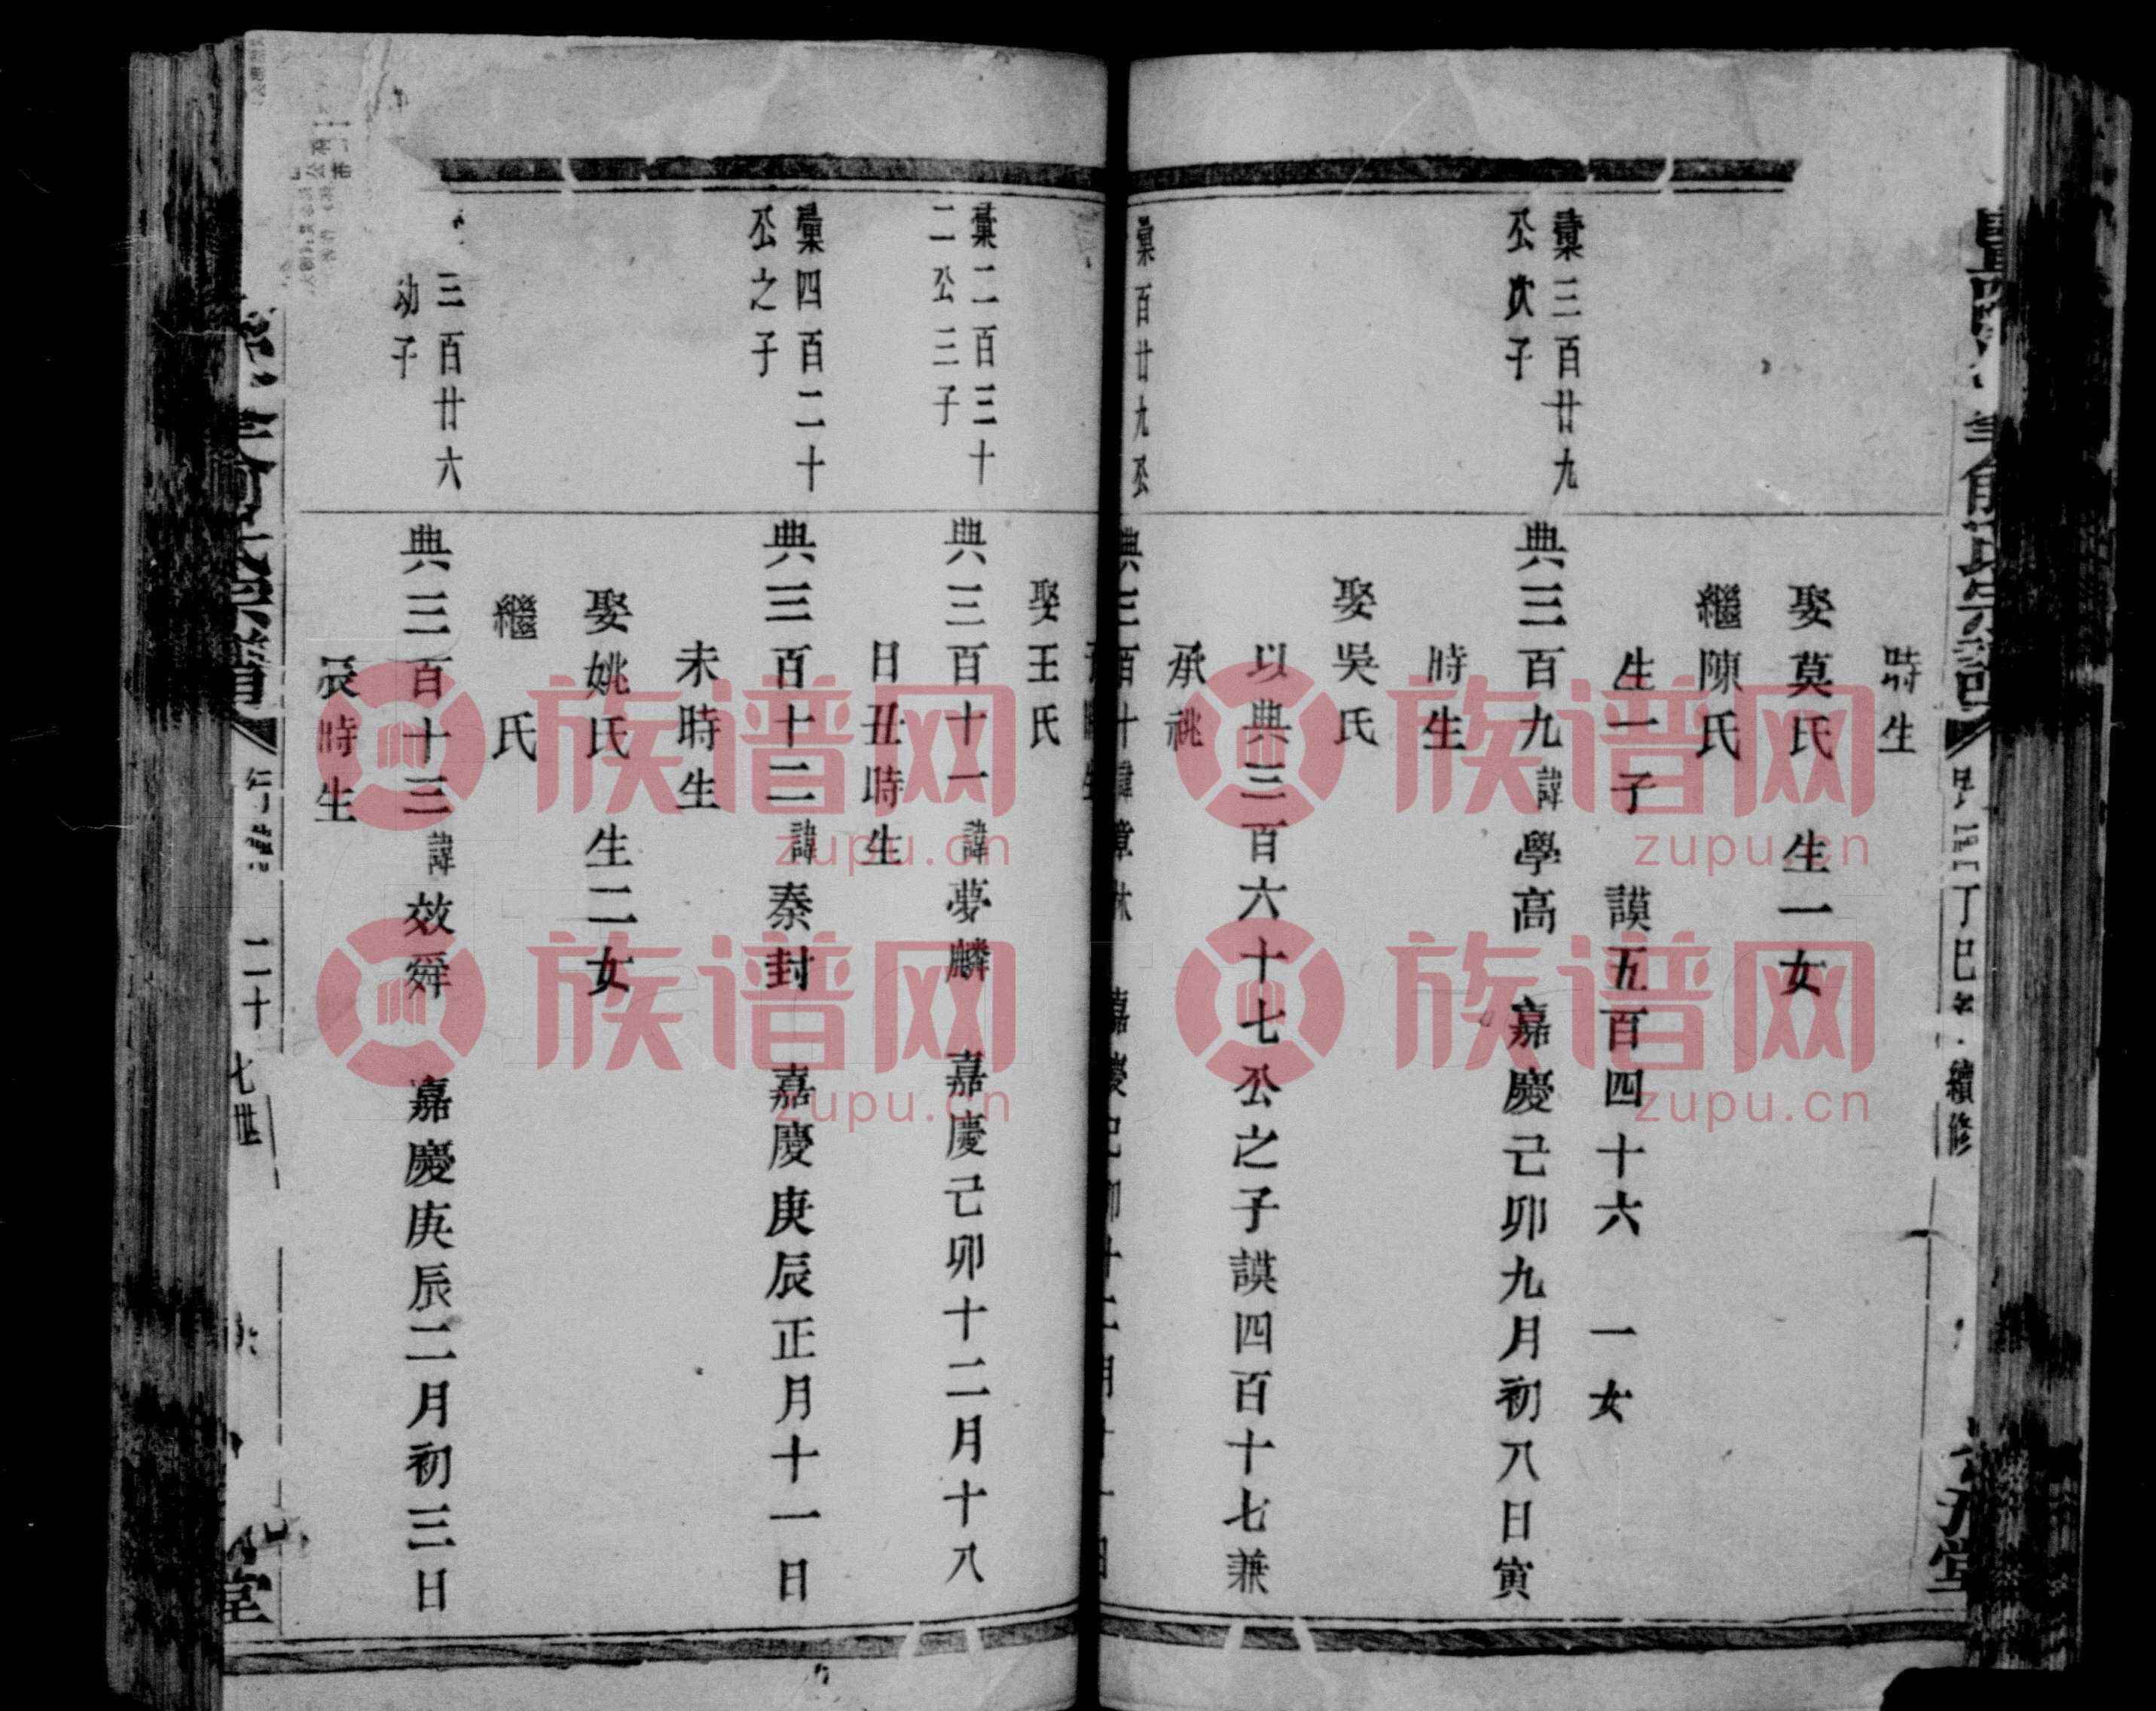 俞氏宗譜
民國丁巳年續修
堂
時生
娶莫氏 生一女
繼陳氏
生一子 謨五百四十六 一女
彙三百廿九
公次子
典三百九諱學高 嘉慶己卯九月初八日寅
時生
娶吳氏
以典三百六十七公之子謨四百十七兼
承祧
彙百廿九公
典三百十諱章林 嘉慶己卯十 月 十一日
時生
娶王氏
彙二百三十
二公三子
典三百十一諱夢麟 嘉慶己卯十二月十八
日丑時生
彙四百二十
公之子
典三百十二諱泰封 嘉慶庚辰正月十一日
未時生
娶姚氏 生二女
繼 氏
三百廿六
幼子
典三百十三諱效舜 嘉慶庚辰二月初三日
辰時生
俞氏宗譜
行 二十七世
堂
族谱网
zupu.cn
族谱网
zupu.cn
族谱网
zupu.cn
族谱网
zupu.cn